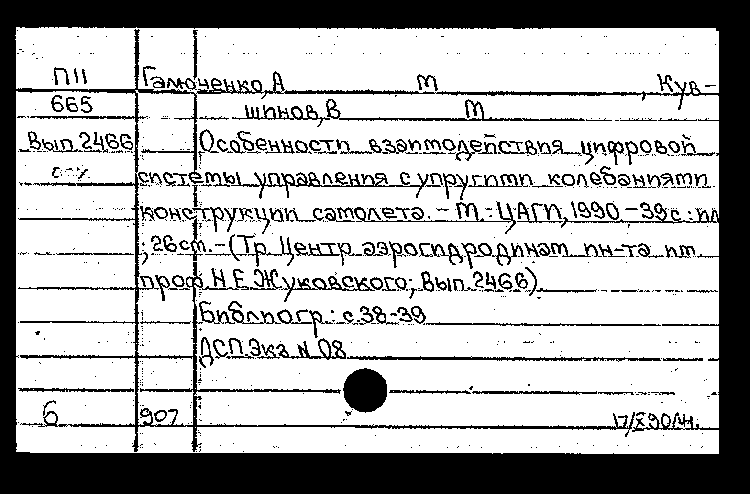 П11 Гамюченко, А М , Кув-
665 шинов, В М
Вып.2466 Особенности взаимодействия цифровой
системы управления с упругими колебаниями
конструкции самолета. - М.: ЦАГИ, 1990. - 39с: ил
; 26см. - (Тр. Центр. аэрогидродинам. ин-та им.
проф. Н.Е.Жуковского; Вып.2466).
Библиогр.: с.38-39
ДСП. Экз N 08
6 907 17/X90